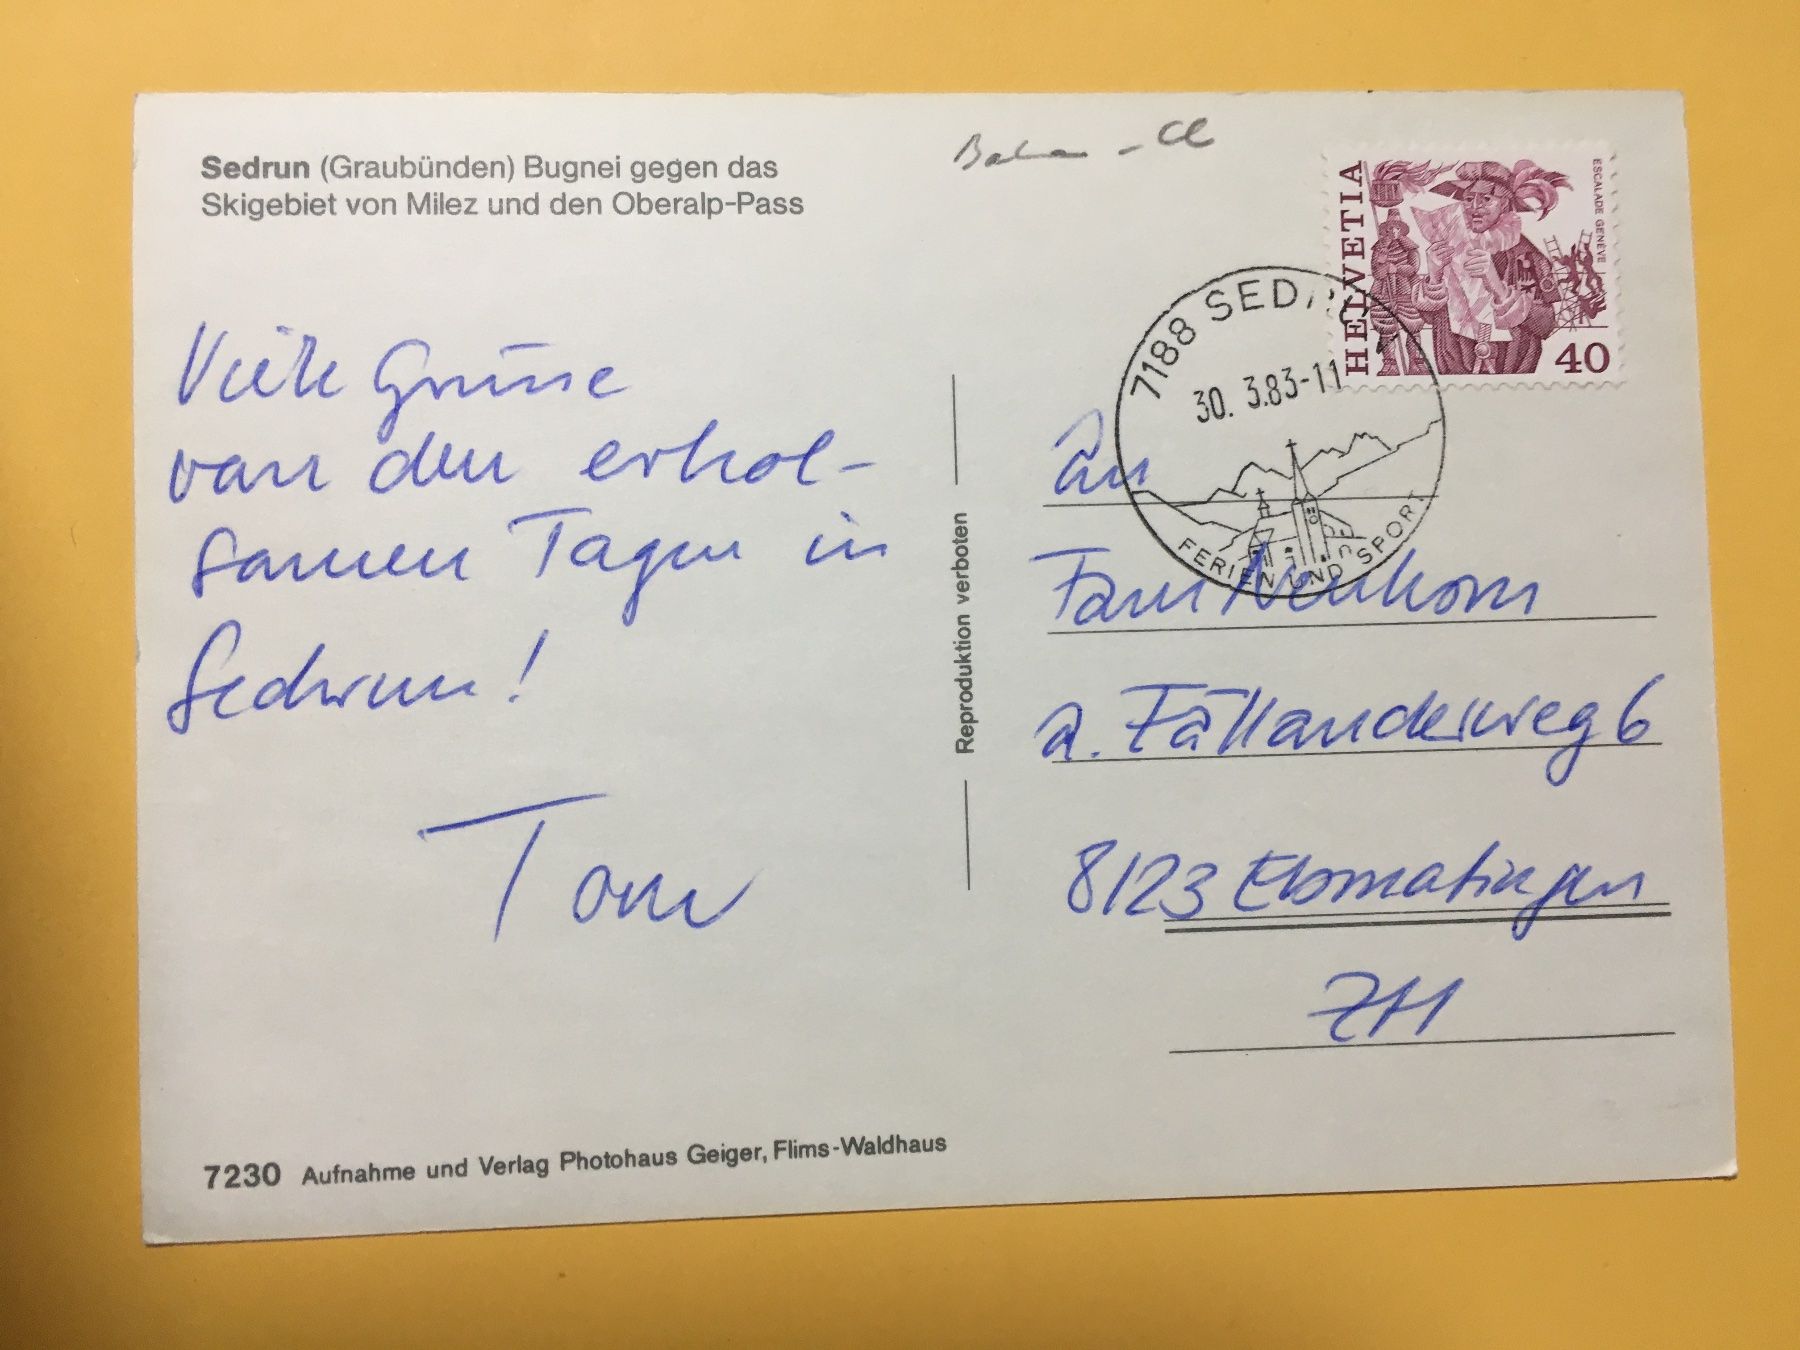 Sedrun (Graubünden) Bugnei gegen das
Skigebiet von Milez und den Oberalp-Pass
HELVETIA
ESCALADE GENÈVE
40
7188 SEDRUN
30. 3.83-11
FERIEN UND SPORT
Viele Grüsse
von den erhol-
samen Tagen in
Sedrun!
Tom
Reproduktion verboten
An
Fam
a. Fällanderweg 6
8123 Ebmatingen
ZH
7230 Aufnahme und Verlag Photohaus Geiger, Flims-Waldhaus